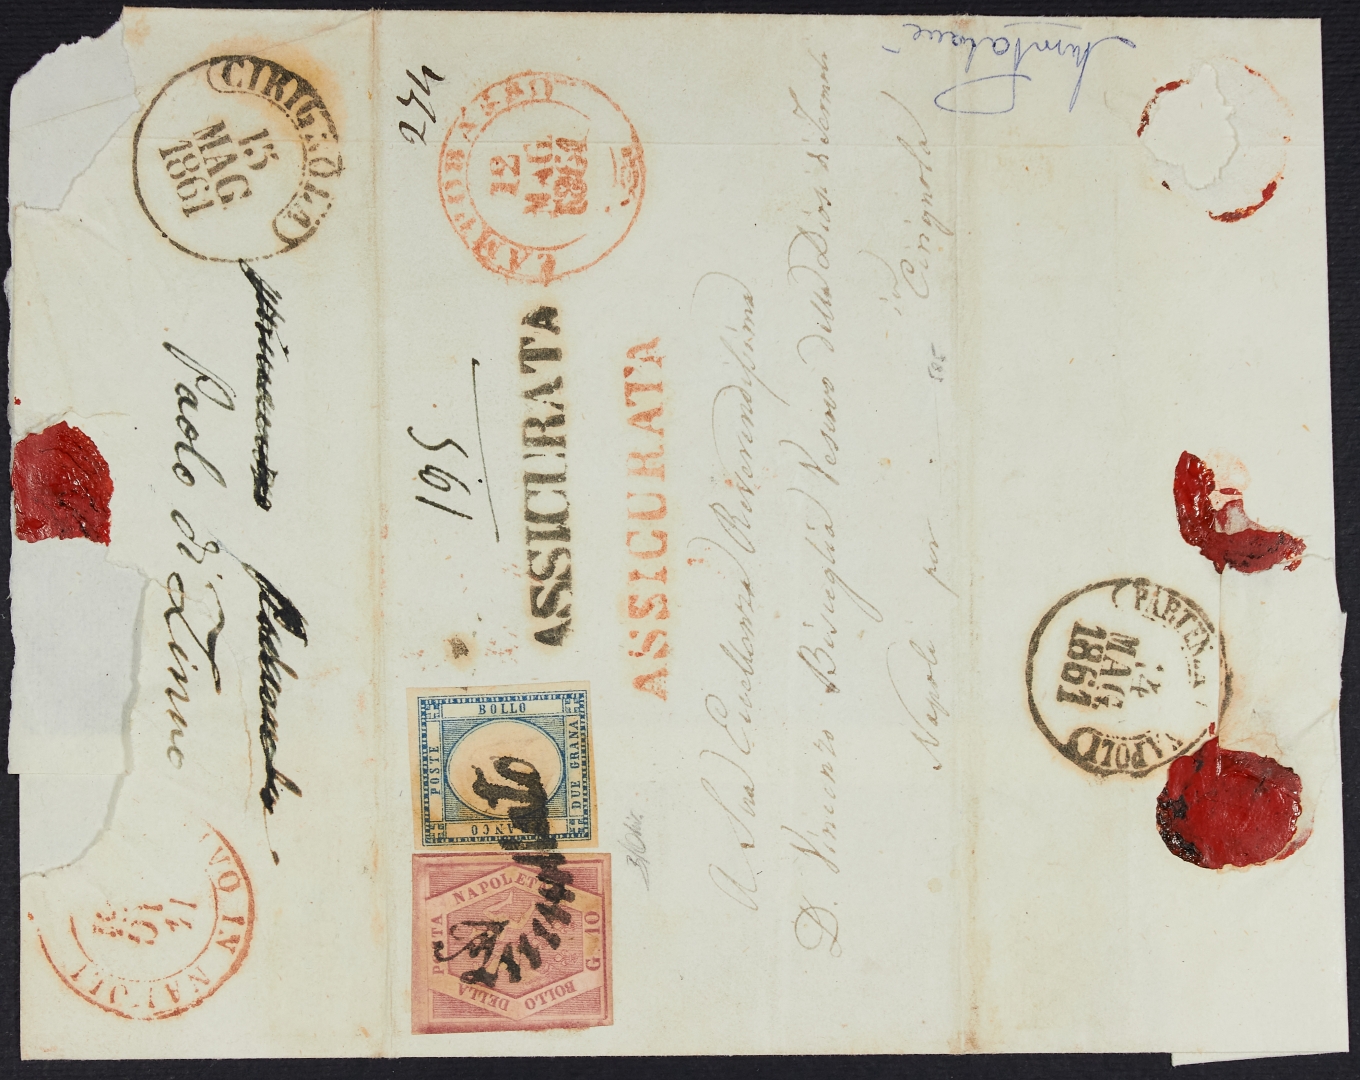 CIRIGNOLA
15
MAG
1861
CAMPOBASSO
12
MAG
1861
ASSICURATA
ASSICURATA
561
Paolo di Zinno
BOLLO
POSTE
DUE GRANA
FRANCO
Annullato
POSTA NAPOLETANA
BOLLO
DELLA
G. 10
A Sua Eccellenza Reverendissima
D. Vincenzo Bisceglia Vescovo della Diocesi di Termoli
Napoli per
in Cerignola
585
PARTENZA NAPOLI
14
MAG
1861
ARRIVO
NAPOLI